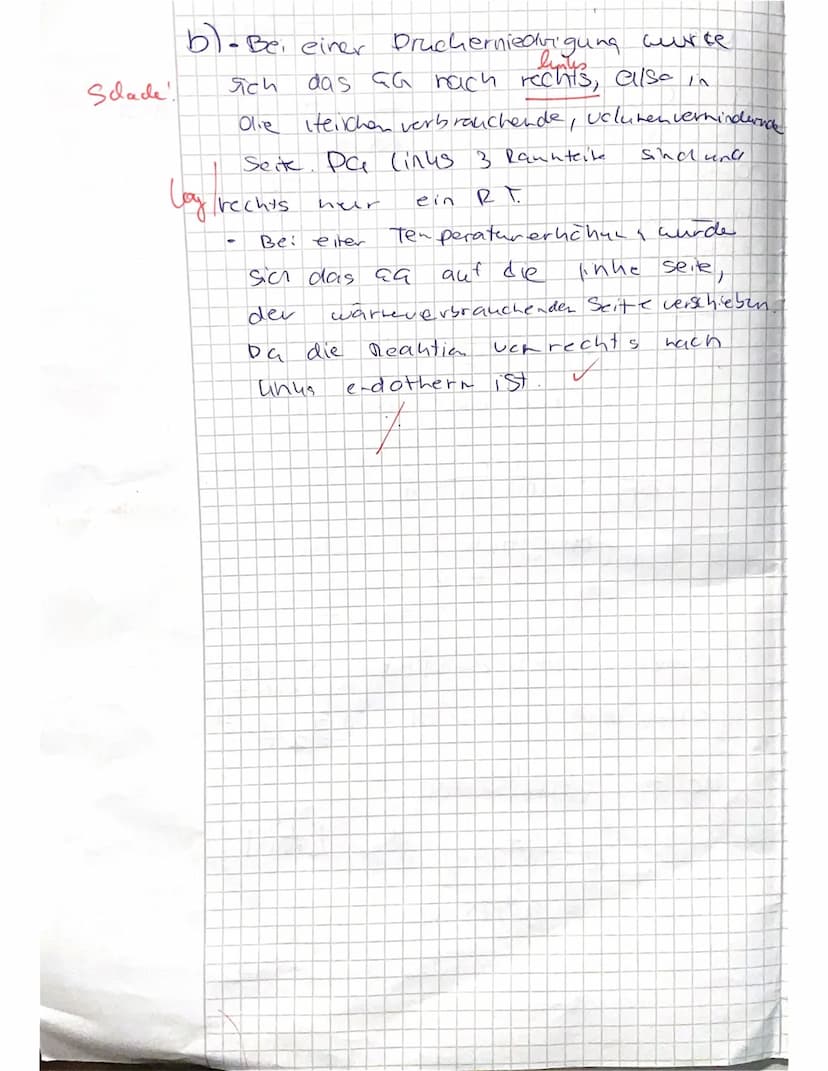 b) - Bei einer Druckerniedrigung würde
links
Schade! sich das GG nach rechts, also in
die teilchenverbrauchende, volumenvermindernde
Seite. Da links 3 Raumteile sind und
log rechts nur ein RT.
- Bei einer Temperaturerhöhung würde
sich das GG auf die linke Seite,
der wärmeverbrauchenden Seite verschieben.
Da die Reaktion von rechts nach
links endotherm ist. ✓